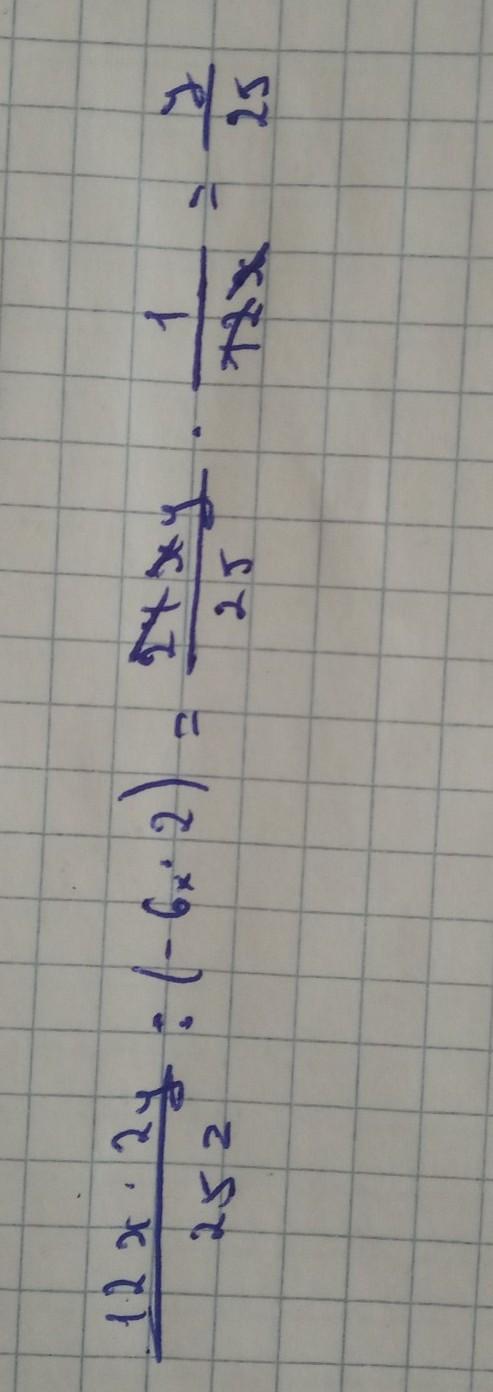 12x · 2y / 25 2 : (-6x · 2) = 24xy / 25 · 1 / 12x = y / 25